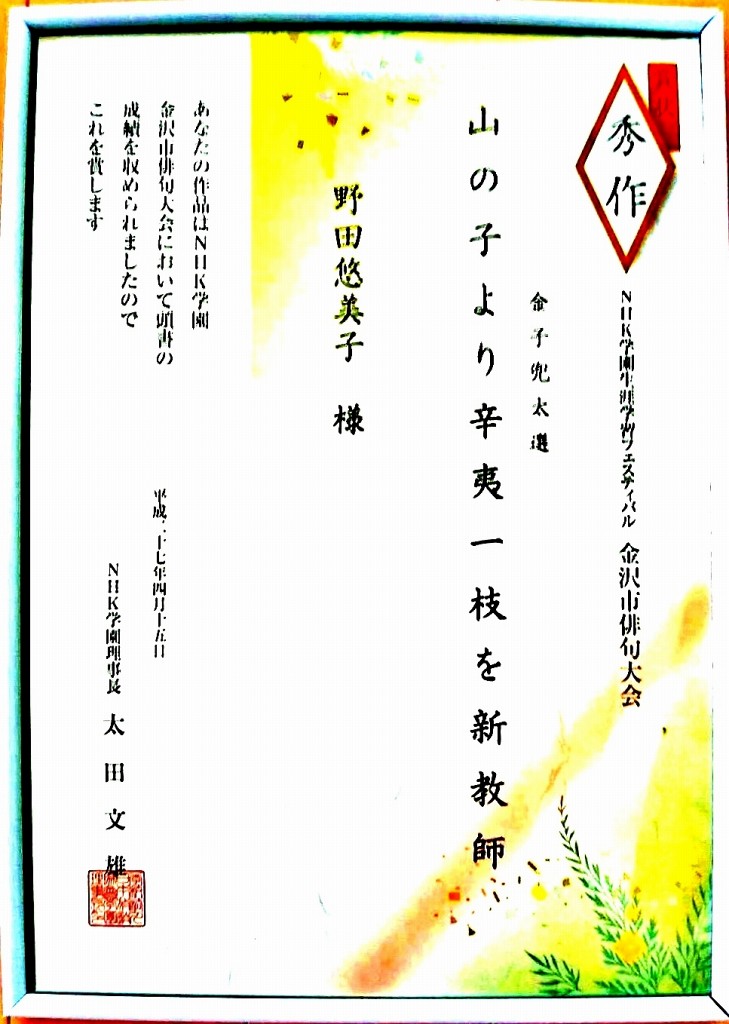 秀作
NHK学園生涯学習フェスティバル 金沢市俳句大会
金子兜太選
山の子より辛夷一枝を新教師
野田悠美子 様
あなたの作品はNHK学園
金沢市俳句大会において頭書の
成績を収められましたので
これを賞します
平成二十七年四月十五日
NHK学園理事長 太田文雄